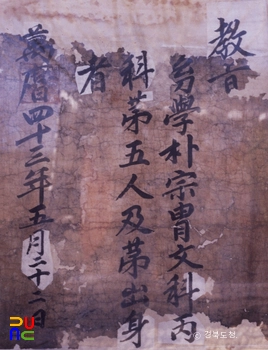 教旨
幼學朴宗胄文科丙
科苐五人及苐出身
者
萬曆四十三年五月二十二日
© 경북도청